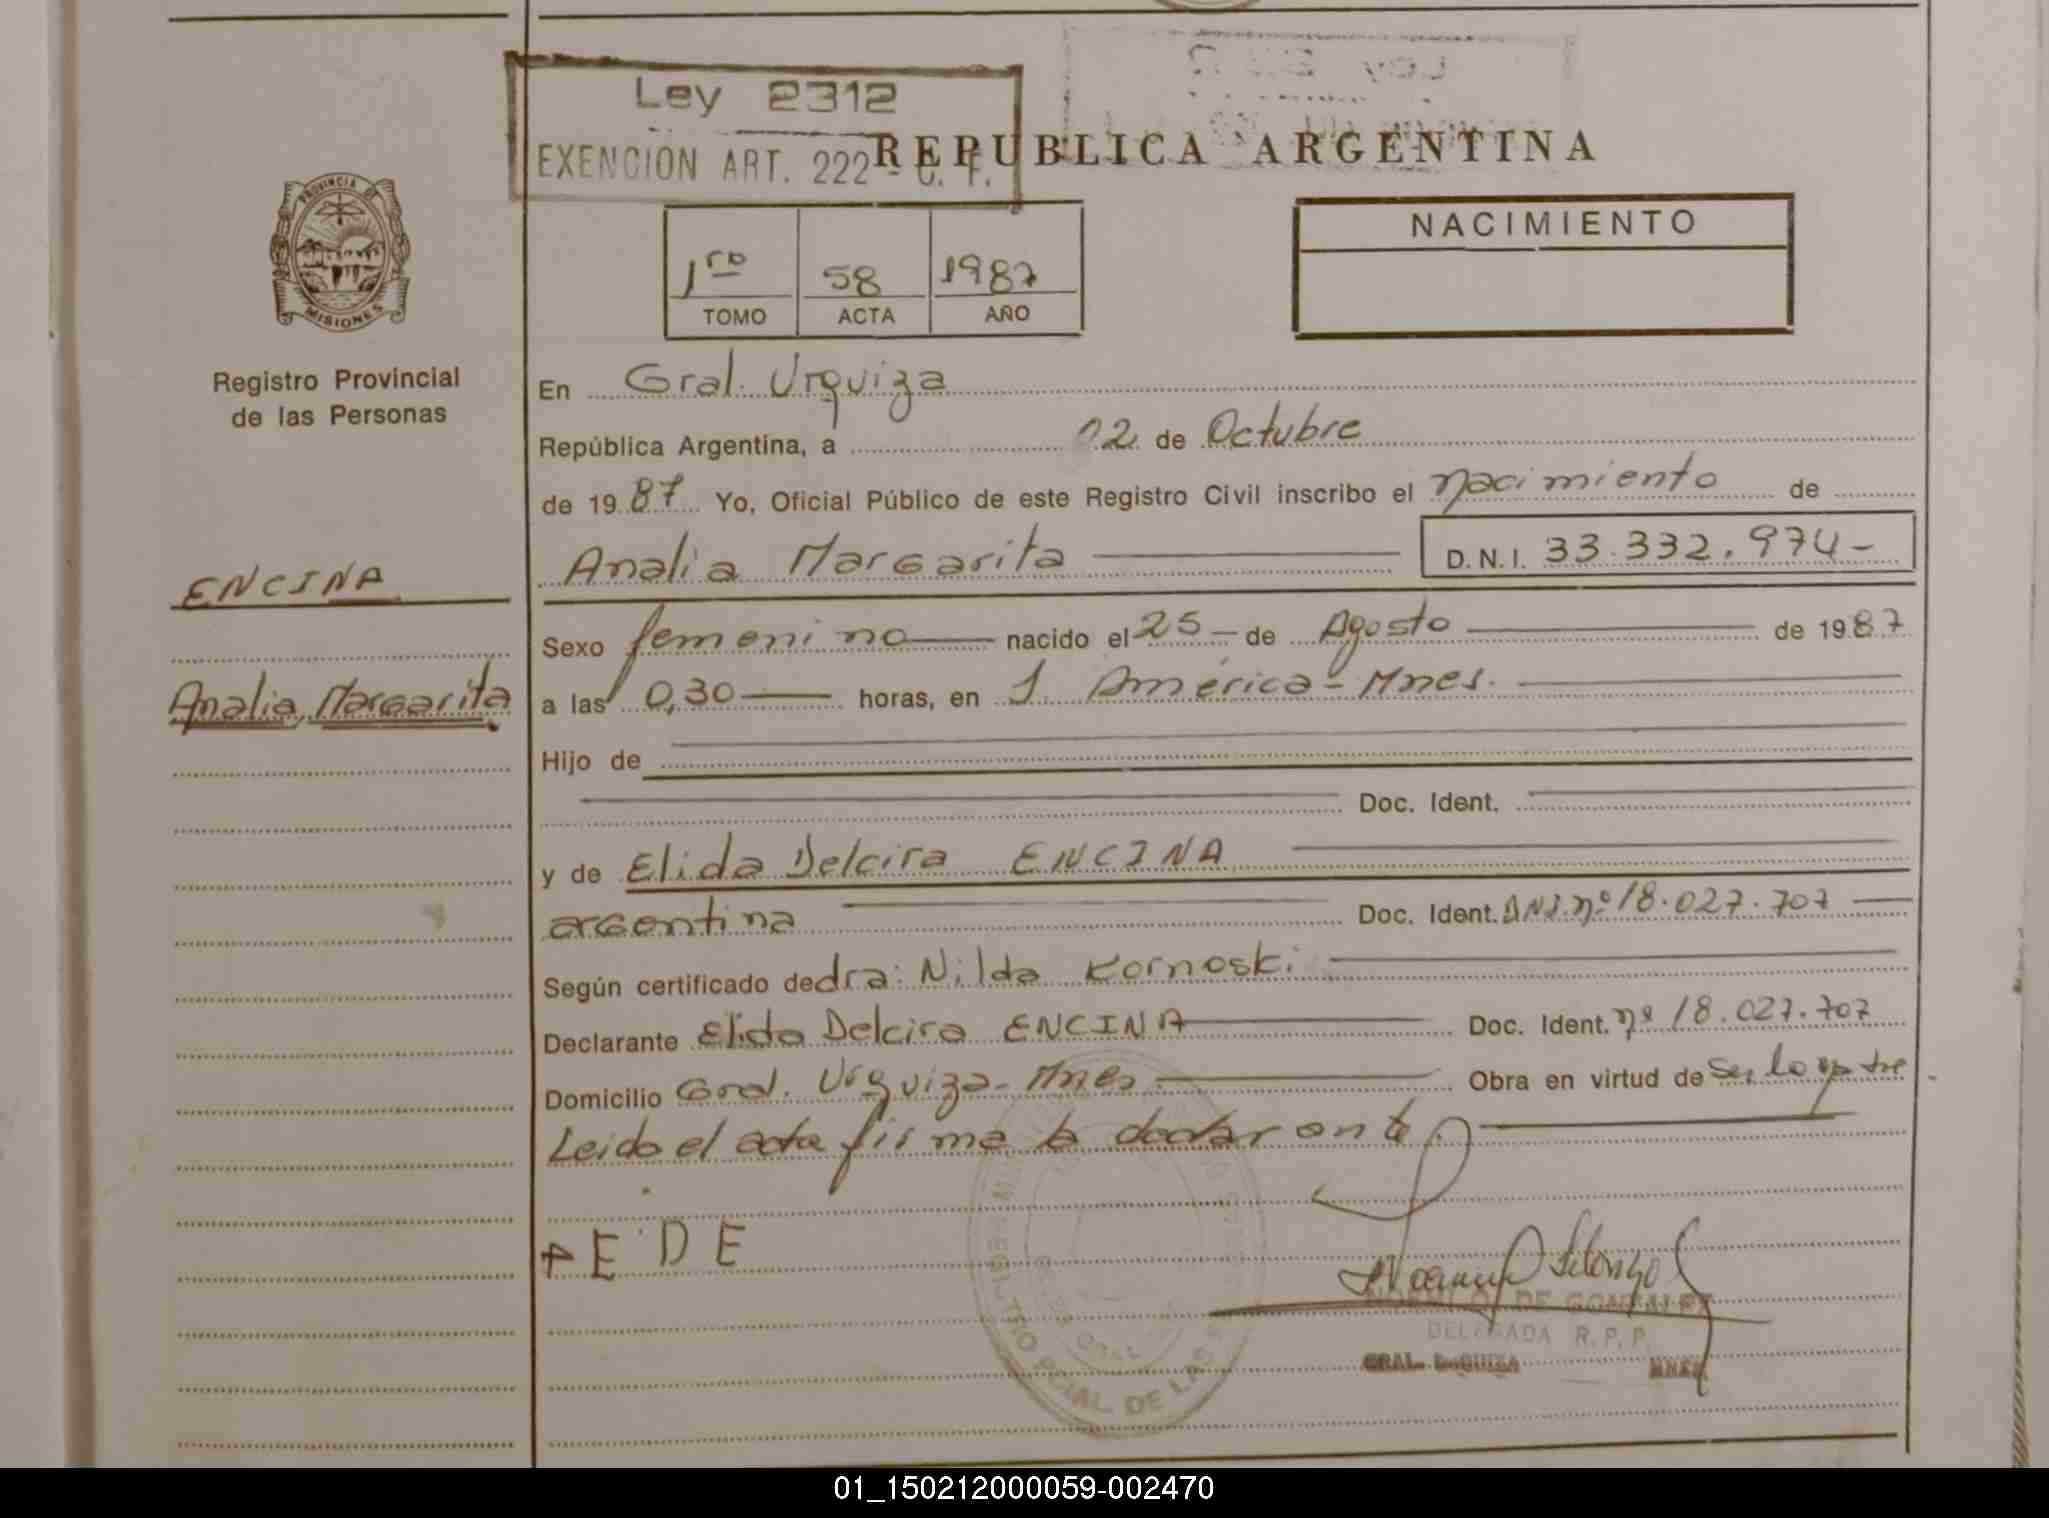 Ley 2312
EXENCION ART. 222 - C. F.
REPUBLICA ARGENTINA
PROVINCIA DE
MISIONES
Registro Provincial
de las Personas
1ro 58 1987
TOMO ACTA AÑO
NACIMIENTO
En Gral. Urquiza
República Argentina, a 02 de Octubre
de 1987 Yo, Oficial Público de este Registro Civil inscribo el nacimiento de
Analia Margarita D.N.I. 33.332.974-
ENCINA
Analia Margarita
Sexo femenino nacido el 25 - de Agosto de 1987
a las 0,30 horas, en 1. América - Mnes.
Hijo de
Doc. Ident.
y de Elida Delcira ENCINA
argentina Doc. Ident. DNI. nº 18.027.707
Según certificado de dra: Nilda Kornoski
Declarante Elida Delcira ENCINA Doc. Ident. nº 18.027.707
Domicilio Gral. Urquiza - Mnes. Obra en virtud de
Leido el acta firma la declarante.
E D E
DE GONZALEZ
DELEGADA R.P.P.
GRAL. URQUIZA MNES
REGISTRO PCIAL. DE LAS
01_150212000059-002470